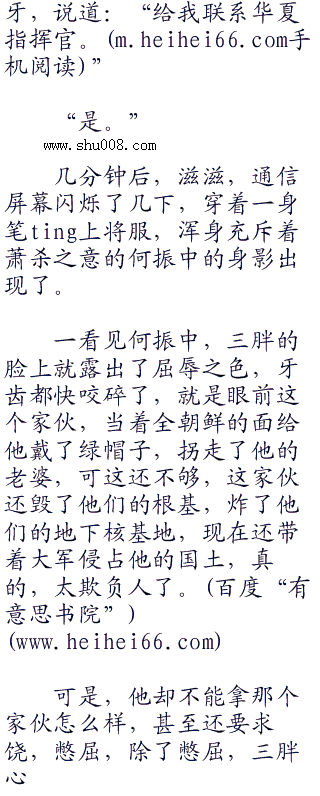 牙，说道：“给我联系华夏
指挥官。(m.heihei66.com手
机阅读)”
“是。”
www.shu008.com
几分钟后，滋滋，通信
屏幕闪烁了几下，穿着一身
笔ting上将服，浑身充斥着
萧杀之意的何振中的身影出
现了。
一看见何振中，三胖的
脸上就露出了屈辱之色，牙
齿都快咬碎了，就是眼前这
个家伙，当着全朝鲜的面给
他戴了绿帽子，拐走了他的
老婆，可这还不够，这家伙
还毁了他们的根基，炸了他
们的地下核基地，现在还带
着大军侵占他的国土，真
的，太欺负人了。(百度“有
意思书院”)
(www.heihei66.com)
可是，他却不能拿那个
家伙怎么样，甚至还要求
饶，憋屈，除了憋屈，三胖
心